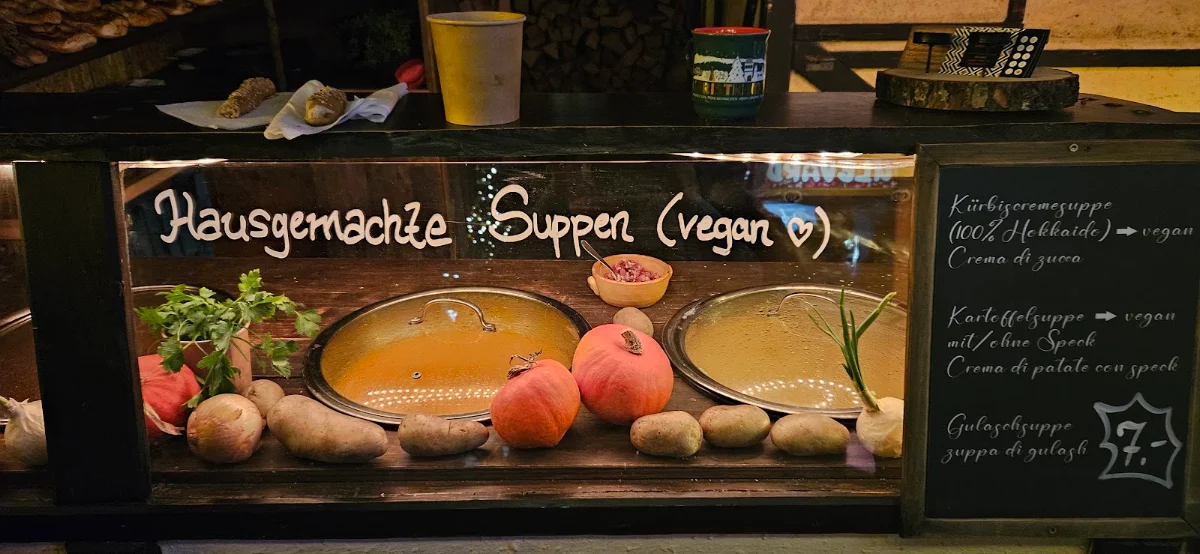 Hausgemachte Suppen (vegan ♡)
Kürbiscremesuppe
(100% Hokkaido) ➡ vegan
Crema di zucca
Kartoffelsuppe ➡ vegan
mit/ohne Speck
Crema di patate con speck
Gulaschsuppe
zuppa di gulash
7.-